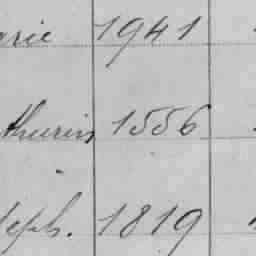 arie 1941
thurin 1556
seph. 1819